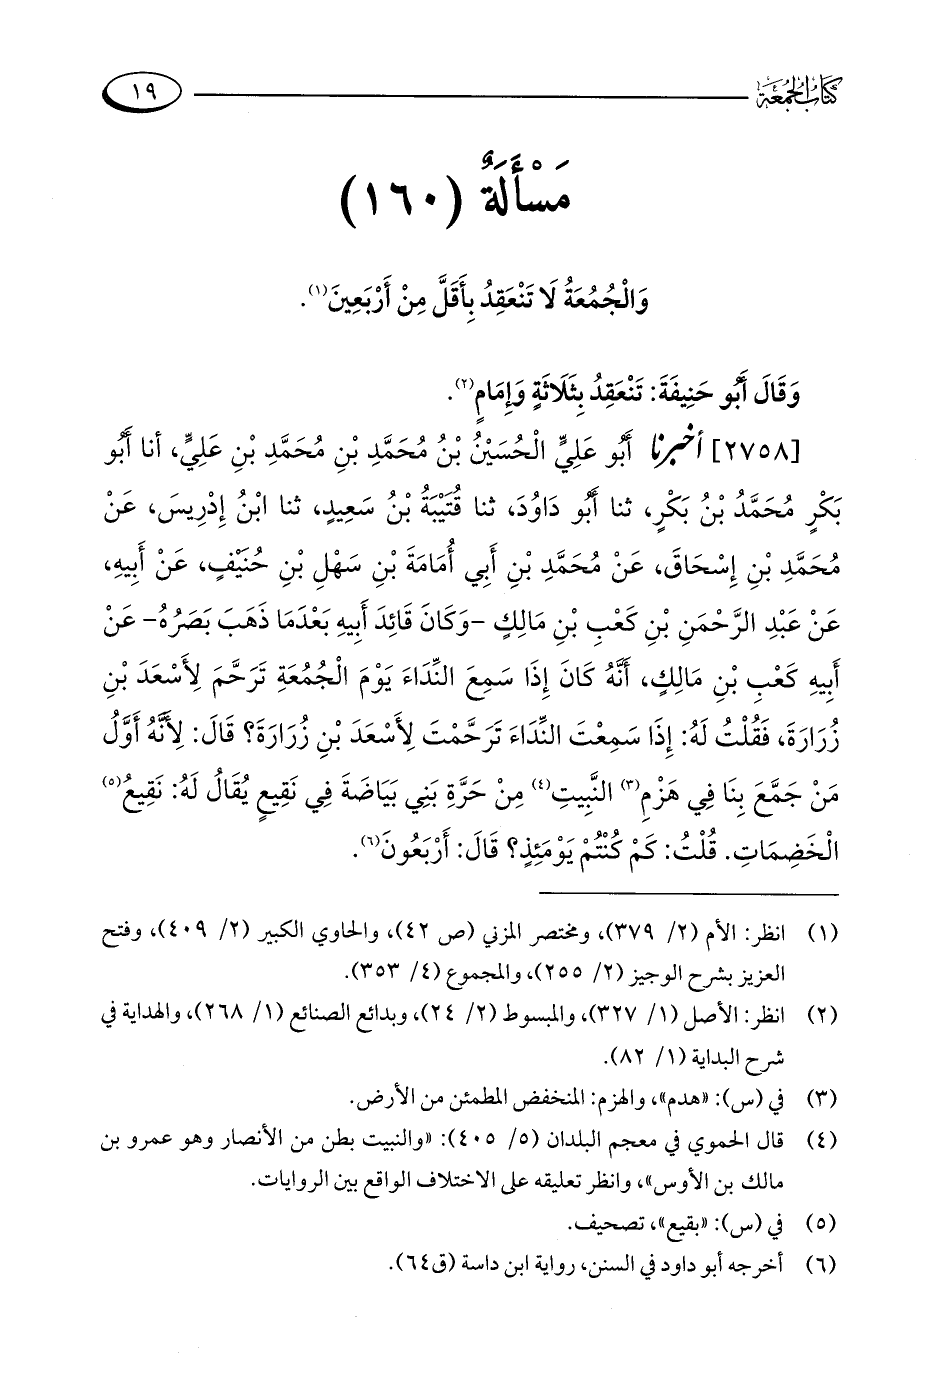 كتاب الجمعة ١٩
مَسْأَلَةٌ (١٦٠)
وَالْجُمُعَةُ لَا تَنْعَقِدُ بِأَقَلَّ مِنْ أَرْبَعِينَ(١).
وَقَالَ أَبُو حَنِيفَةَ: تَنْعَقِدُ بِثَلَاثَةٍ وَإِمَامٍ(٢).
[٢٧٥٨] أخبرنا أَبُو عَلِيٍّ الْحُسَيْنُ بْنُ مُحَمَّدِ بْنِ مُحَمَّدِ بْنِ عَلِيٍّ، أنا أَبُو
بَكْرٍ مُحَمَّدُ بْنُ بَكْرٍ، ثنا أَبُو دَاوُدَ، ثنا قُتَيْبَةُ بْنُ سَعِيدٍ، ثنا ابْنُ إِدْرِيسَ، عَنْ
مُحَمَّدِ بْنِ إِسْحَاقَ، عَنْ مُحَمَّدِ بْنِ أَبِي أُمَامَةَ بْنِ سَهْلِ بْنِ حُنَيْفٍ، عَنْ أَبِيهِ،
عَنْ عَبْدِ الرَّحْمَنِ بْنِ كَعْبِ بْنِ مَالِكٍ -وَكَانَ قَائِدَ أَبِيهِ بَعْدَمَا ذَهَبَ بَصَرُهُ- عَنْ
أَبِيهِ كَعْبِ بْنِ مَالِكٍ، أَنَّهُ كَانَ إِذَا سَمِعَ النِّدَاءَ يَوْمَ الْجُمُعَةِ تَرَحَّمَ لِأَسْعَدَ بْنِ
زُرَارَةَ، فَقُلْتُ لَهُ: إِذَا سَمِعْتَ النِّدَاءَ تَرَحَّمْتَ لِأَسْعَدَ بْنِ زُرَارَةَ؟ قَالَ: لِأَنَّهُ أَوَّلُ
مَنْ جَمَّعَ بِنَا فِي هَزْمِ(٣) النَّبِيتِ(٤) مِنْ حَرَّةِ بَنِي بَيَاضَةَ فِي نَقِيعٍ يُقَالُ لَهُ: نَقِيعُ(٥)
الْخَضِمَاتِ. قُلْتُ: كَمْ كُنْتُمْ يَوْمَئِذٍ؟ قَالَ: أَرْبَعُونَ(٦).
(١) انظر: الأم (٢/ ٣٧٩)، ومختصر المزني (ص ٤٢)، والحاوي الكبير (٢/ ٤٠٩)، وفتح
العزيز بشرح الوجيز (٢/ ٢٥٥)، والمجموع (٤/ ٣٥٣).
(٢) انظر: الأصل (١/ ٣٢٧)، والمبسوط (٢/ ٢٤)، وبدائع الصنائع (١/ ٢٦٨)، والهداية في
شرح البداية (١/ ٨٢).
(٣) في (س): «هدم»، والهزم: المنخفض المطمئن من الأرض.
(٤) قال الحموي في معجم البلدان (٥/ ٤٠٥): «والنبيت بطن من الأنصار وهو عمرو بن
مالك بن الأوس»، وانظر تعليقه على الاختلاف الواقع بين الروايات.
(٥) في (س): «بقيع»، تصحيف.
(٦) أخرجه أبو داود في السنن، رواية ابن داسة (ق٦٤).